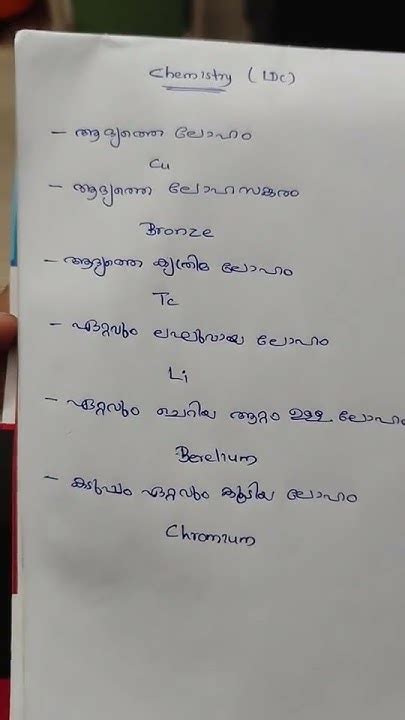 Chemistry (LDC)
- ആദ്യത്തെ ലോഹം
Cu
- ആദ്യത്തെ ലോഹസങ്കരം
Bronze
- ആദ്യത്തെ കൃത്രിമ ലോഹം
Tc
- ഏറ്റവും ലഘുവായ ലോഹം
Li
- ഏറ്റവും ചെറിയ ആറ്റം ഉള്ള ലോഹം
Berelium
- കടുപ്പം ഏറ്റവും കൂടിയ ലോഹം
Chromium